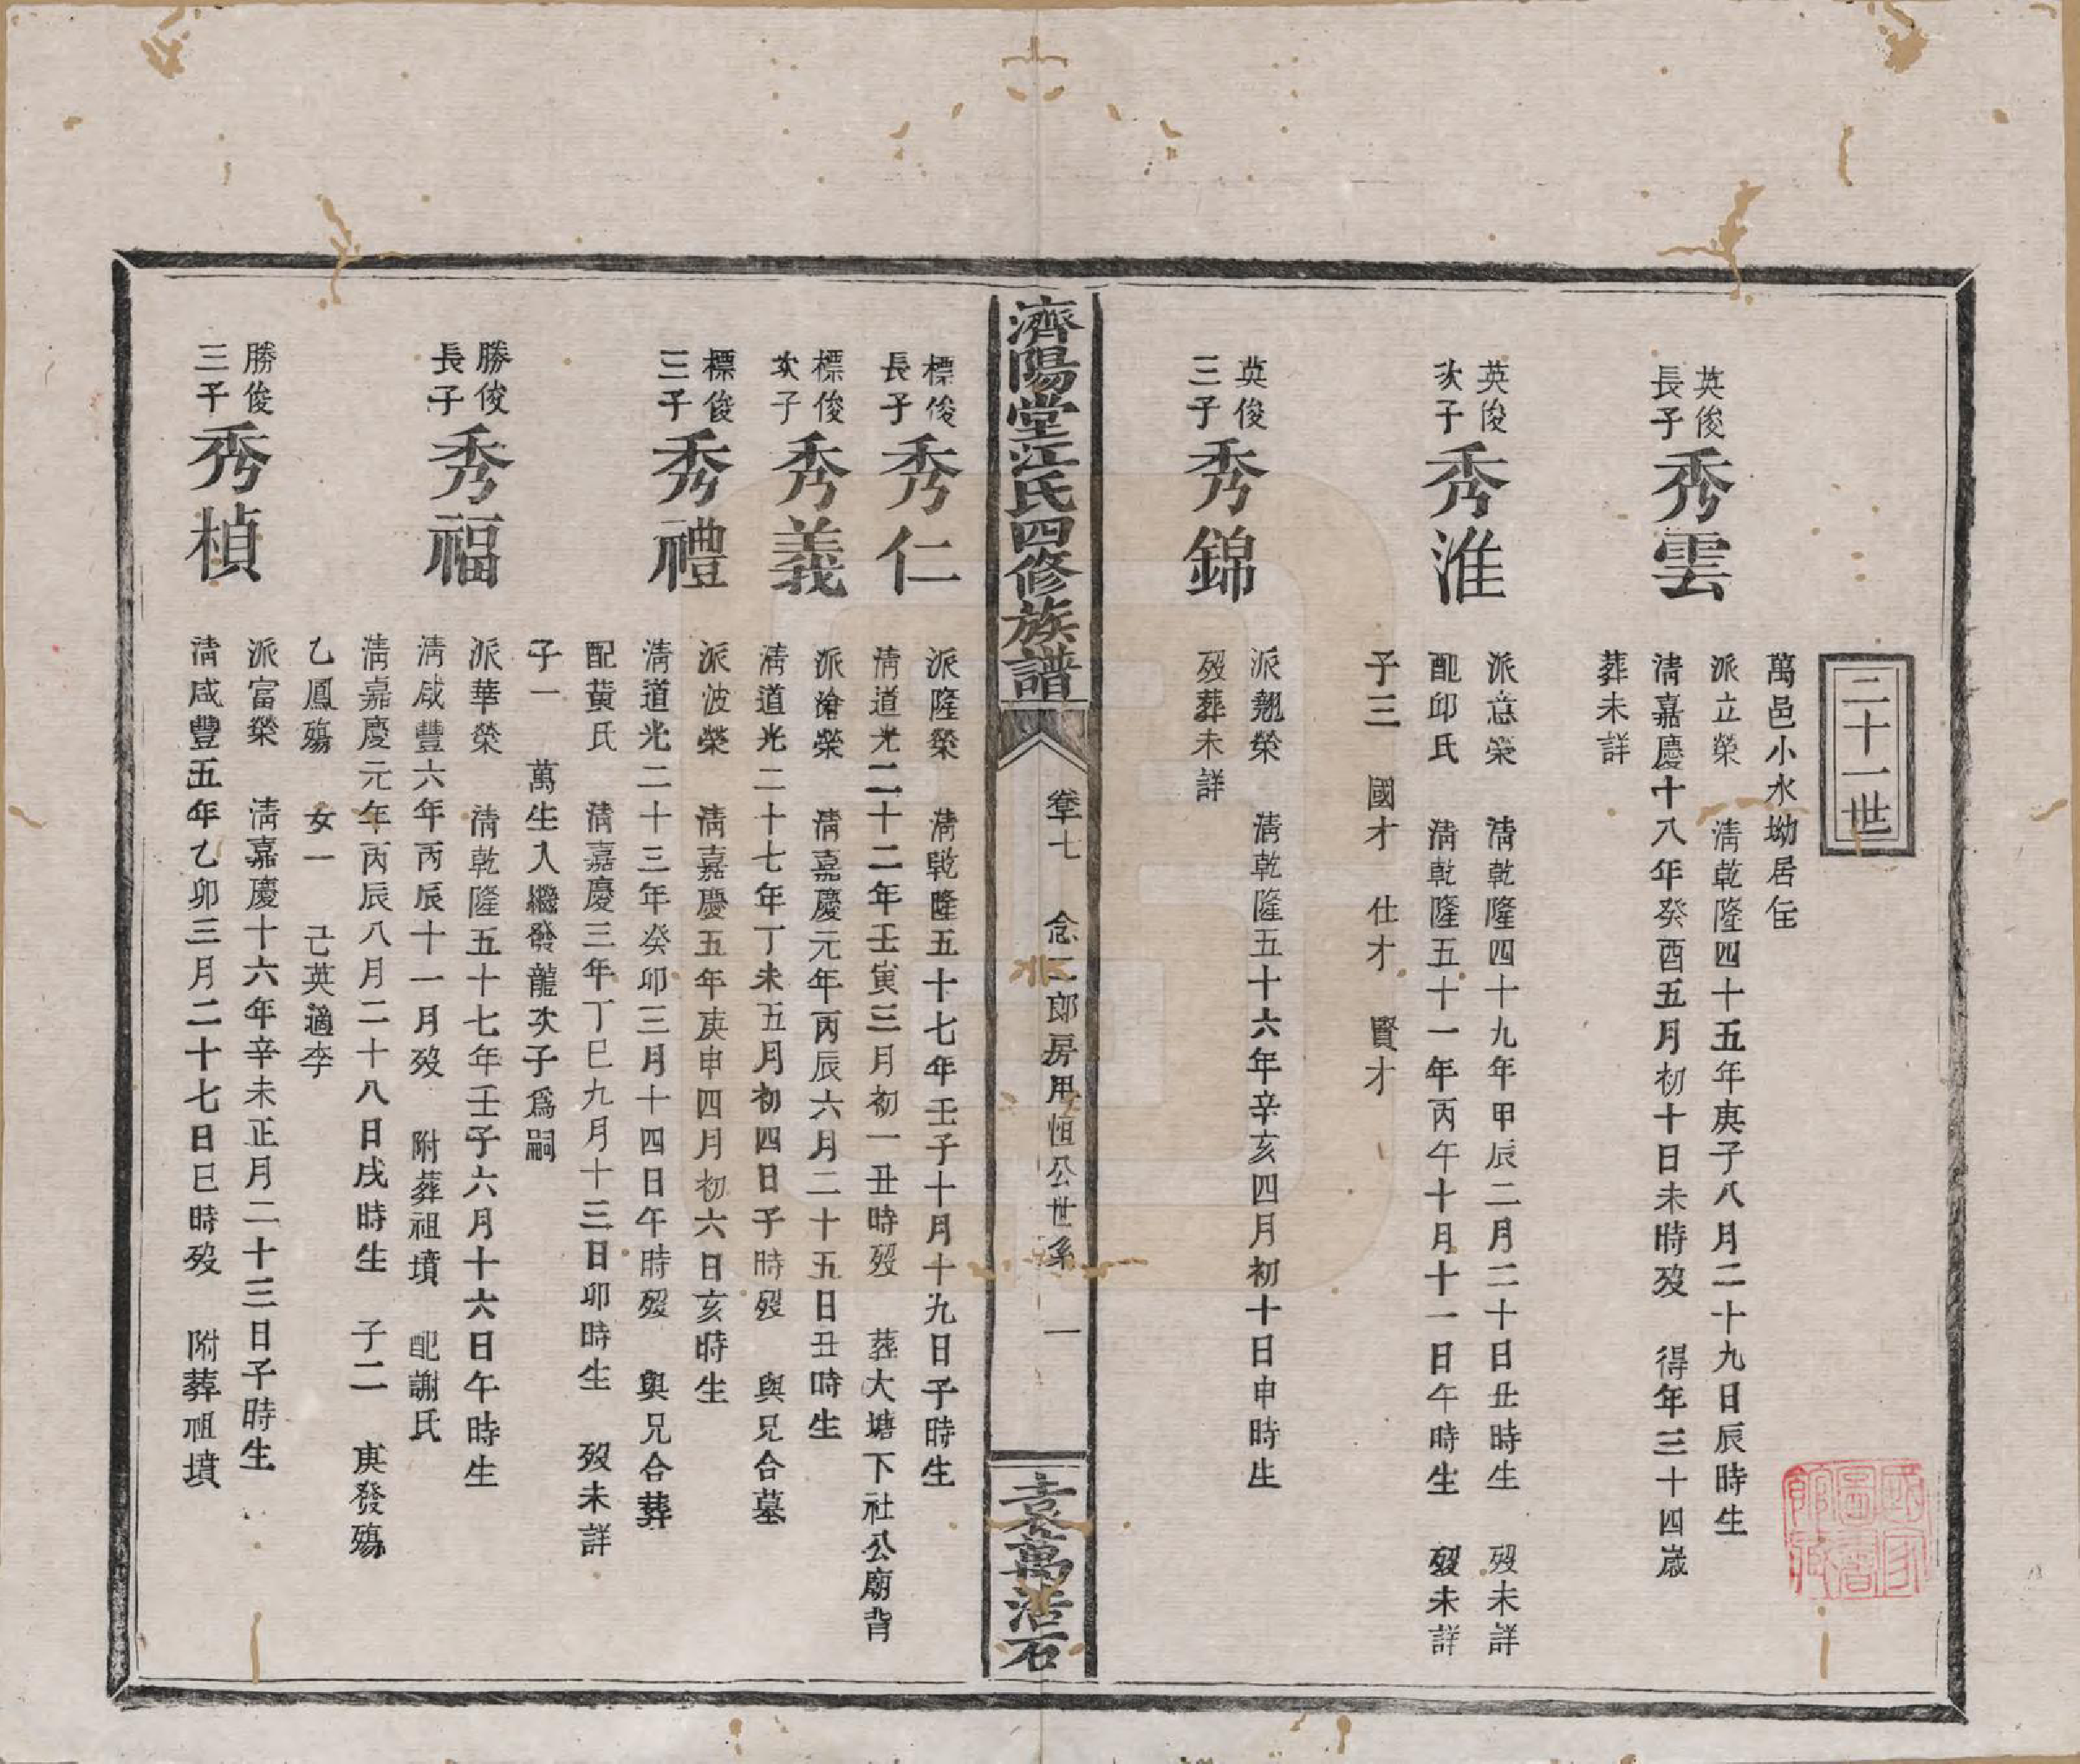 二十一世
萬邑小水坳居住
英俊
長子
秀雲
派立榮 淸乾隆四十五年庚子八月二十九日辰時生
淸嘉慶十八年癸酉五月初十日未時歿 得年三十四歲
葬未詳
英俊
次子
秀淮
派意榮 淸乾隆四十九年甲辰二月二十日丑時生 歿未詳
配邱氏 淸乾隆五十一年丙午十月十一日午時生 歿未詳
子三 國才 仕才 賢才
英俊
三子
秀錦
派翹榮 淸乾隆五十六年辛亥四月初十日申時生
歿葬未詳
濟陽堂江氏四修族譜
卷七 念二郎房用恒公世系 一
袁萬浩石
標俊
長子
秀仁
派隆榮 淸乾隆五十七年壬子十月十九日子時生
淸道光二十二年壬寅三月初一丑時歿 葬大塘下社公廟背
標俊
次子
秀義
派滄榮 淸嘉慶元年丙辰六月二十五日丑時生
淸道光二十七年丁未五月初四日子時歿 與兄合墓
標俊
三子
秀禮
派波榮 淸嘉慶五年庚申四月初六日亥時生
淸道光二十三年癸卯三月十四日午時歿 與兄合葬
配黃氏 淸嘉慶三年丁巳九月十三日卯時生 歿未詳
子一 萬生入繼發龍次子爲嗣
勝俊
長子
秀福
派華榮 淸乾隆五十七年壬子六月十六日午時生
淸咸豐六年丙辰十一月歿 附葬祖墳 配謝氏
淸嘉慶元年丙辰八月二十八日戌時生 子二 庚發殤
乙鳳殤 女一 己英適李
勝俊
三子
秀楨
派富榮 淸嘉慶十六年辛未正月二十三日子時生
淸咸豐五年乙卯三月二十七日巳時歿 附葬祖墳
國家
圖書
館藏